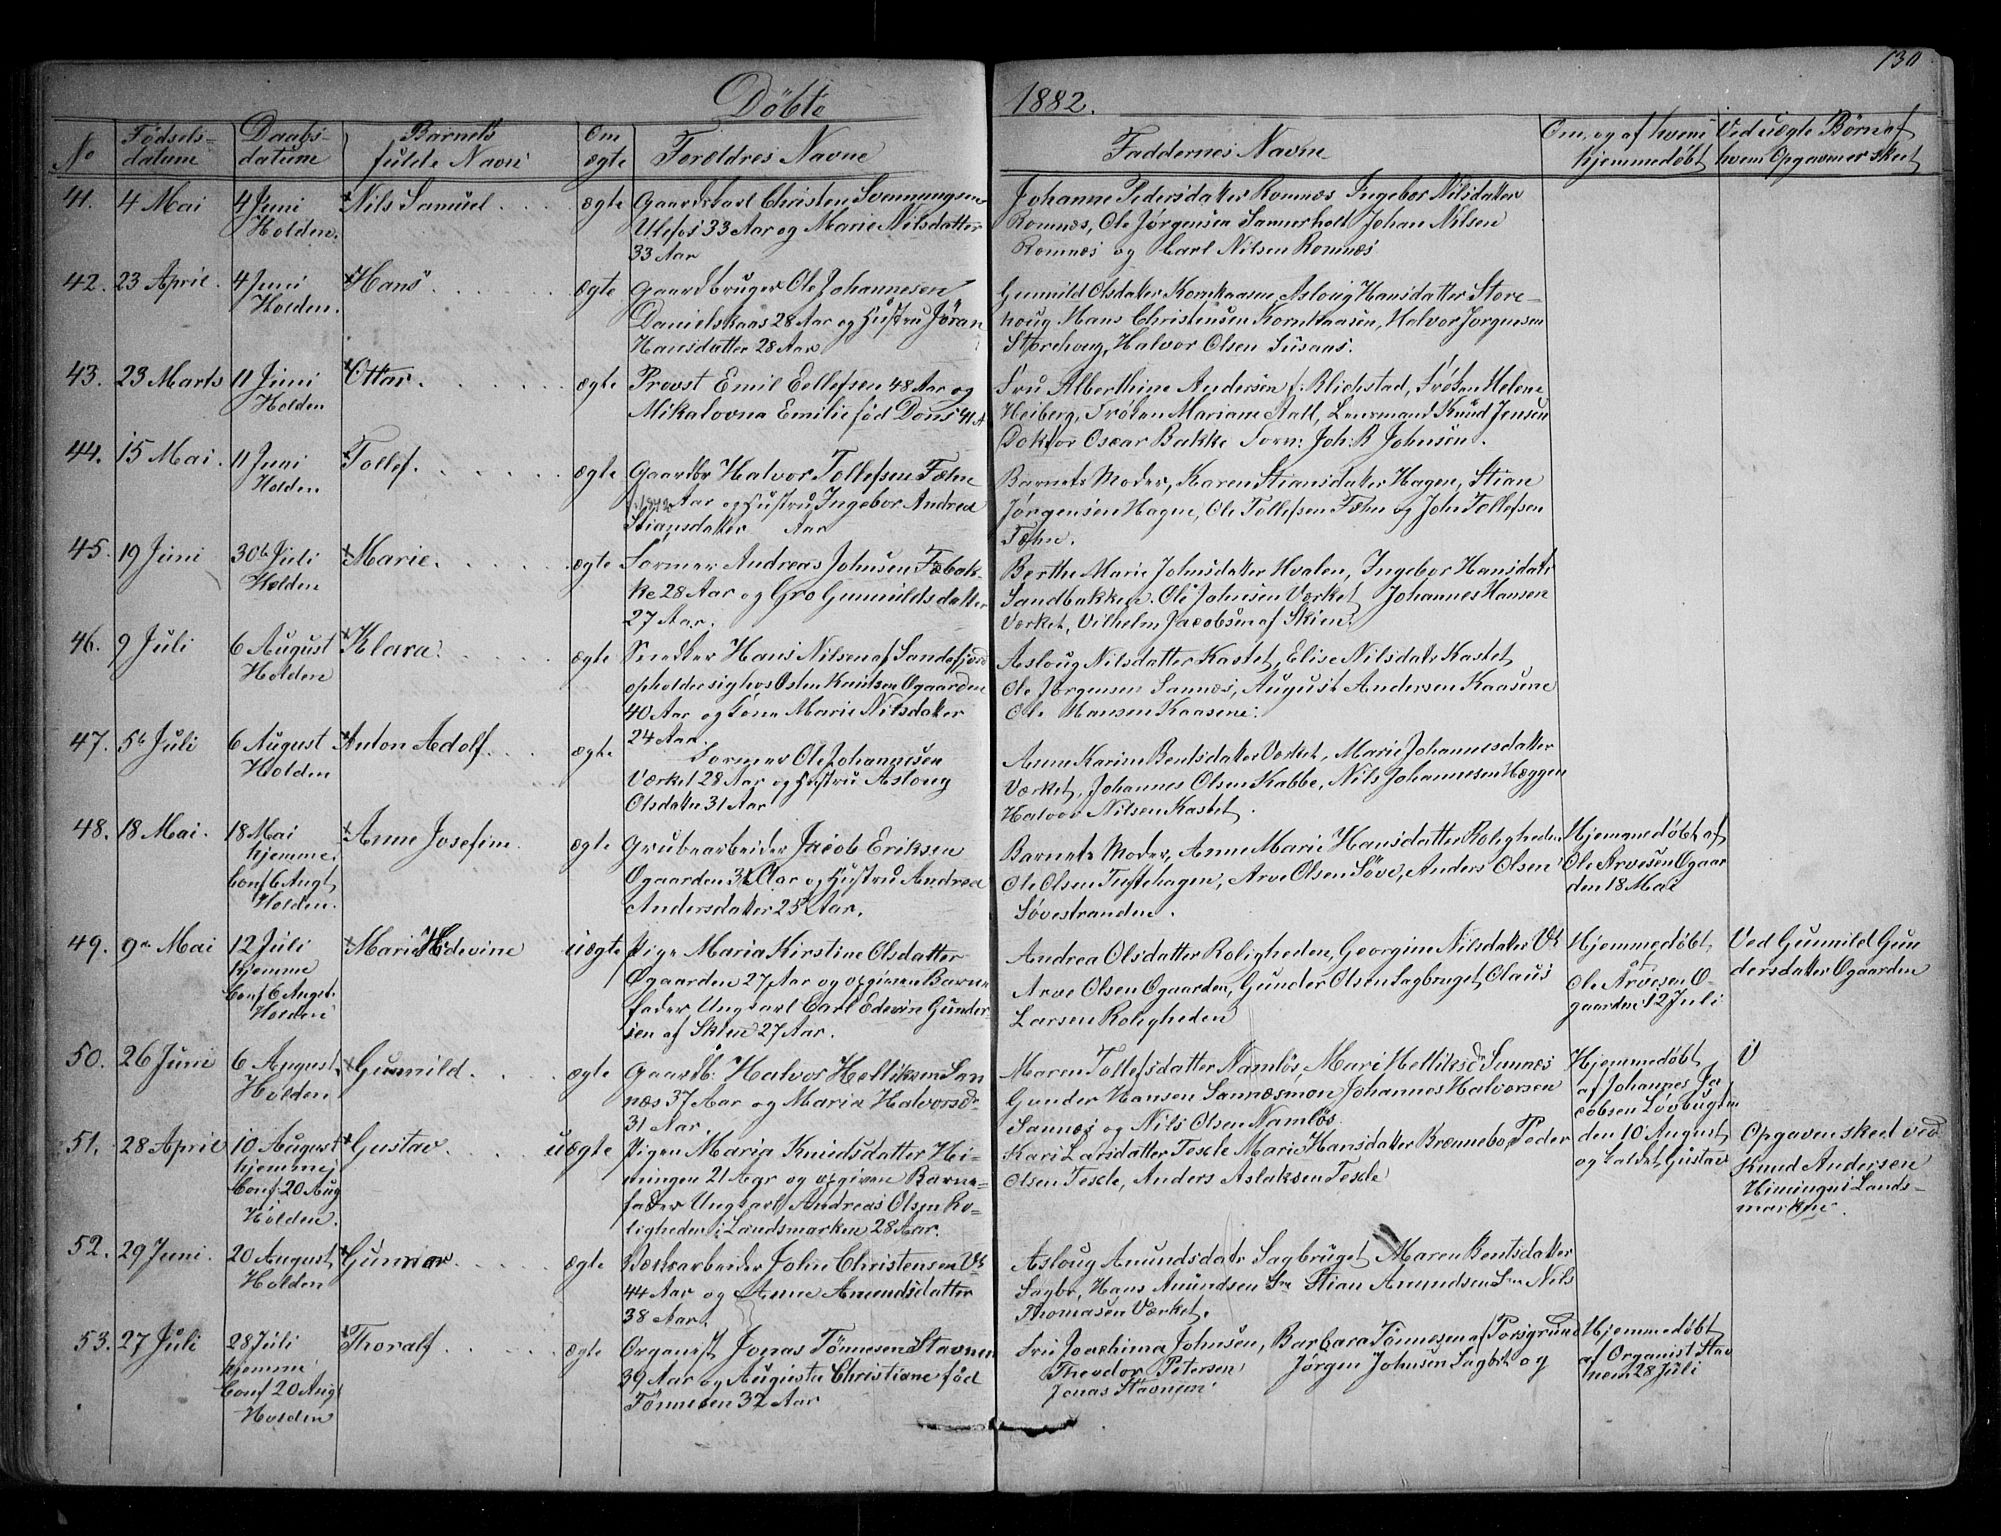 130
Døbte 1882.
No
Fødsels-
datum
Daabs-
datum
Barnets
fulde Navn
Om
ægte
Forældres Navne
Faddernes Navne
Om, og af hvem
hjemmedøbt
Ved uægte Børn af
hvem Opgaven er skeet
41. 4 Mai
4 Juni
Holden.
Nils Samuel
ægte
Gaardskarl Christen Svennungsen
Ulefos 33 Aar og Marie Nilsdatter
33 Aar
Johanne Pedersdatter Romnæs Ingebor Nilsdatter
Romnæs, Ole Jørgensen Samerholt Johan Nilsen
Romnæs og Carl Nilsen Romnæs
42. 23 April.
4 Juni
Holden.
Hans
ægte
Gaardbruger Ole Johannesen
Danielskaas 28 Aar og Hustru Jöran
Hansdatter 28 Aar
Gunnild Olsdatter Kornkaasene, Asloug Hansdatter Store-
houg Hans Christensen Kornkaasen, Halvor Jørgensen
Storehoug, Halvor Olsen Susaas.
43. 23 Marts
11 Juni
Holden
Ottar.
ægte
Provst Emil Eellefsen 48 Aar og
Mikalovna Emilie fød Dons 41 A
Fru Alberthine Andersen f. Blichstad, Frøken Helene
Heiberg, Frøken Mariane Aall, Lensmand Knud Jensen
Doktor Oscar Bakke Forv: Joh: B Johnsen.
44. 15 Mai.
11 Juni
Holden
Tollef.
ægte
Gaardbr Halvor Tollefsen Fæhn
Aar og Hustru Ingebor Andrea
Stiansdatter Aar
Barnets Moder, Karen Stiansdatter Hagen, Stian
Jørgensen Hagen, Ole Tollefsen Fæhn og John Tollefsen
Fæhn.
45. 19 Juni
30te Juli
Holden
Marie.
ægte
Former Andreas Johnsen Fæbak-
ke 28 Aar og Gro Gunnildsdatter
27 Aar.
Berthe Marie Johnsdatter Hvalen, Ingebor Hansdatr
Sandbakken. Ole Johnsen Værket, Johannes Hansen
Værket, Vilhelm Jacobsen af Skien.
46. 9 Juli
6 August
Holden
Klara.
ægte
Snedker Hans Nilsen af Sandefjord
opholder sig hos Osten Knutsen Ogaarden
40 Aar og Lena Marie Nilsdatter
24 Aar.
Asloug Nilsdatter Kastet, Elise Nilsdatr Kastet
Ole Jørgensen Sannæs, August Andersen Kaasene
Ole Hansen Kaasene.
47. 5te Juli
6 August
Holden
Anton Adolf.
ægte
Former Ole Johannesen
Værket 28 Aar og Hustru Asloug
Olsdatter 31 Aar
Anne Karine Bentsdatter Værket, Marie Johannesdatter
Værket, Johannes Olsen Kabbe, Nils Johannesen Hæggen
Halvor Nilsen Kastet.
48. 18 Mai.
18 Mai
hjemme.
Conf 6 Augt
Holden.
Anne Josefine
ægte
Grubearbeider Jacob Eriksen
Ogaarden 31 Aar og Hustru Andrea
Andersdatter 25 Aar.
Barnets Moder, Anne Marie Hansdatter Roligheden
Ole Olsen Tustehagen, Arve Olsen Söve, Anders Olsen
Søvestranden.
Hjemmedøbt af
Ole Arvesen Ogaar
den 18 Mai
49. 9de Mai
12 Juli
hjemme
Conf 6 Augst.
Holden
Marie Hedevine
uægte
Pige Maria Kirstine Olsdatter
Ogaarden 27 Aar og opgiven Barne
fader Ungkarl Carl Edevin Gunder-
sen af Skien 27 Aar.
Andrea Olsdatter Roligheden, Georgine Nilsdatter Vk
Arve Olsen Ogaarden, Gunder Olsen Sagbruget, Claus
Larsen Roligheden
Hjemmedøbt
af
Ole Arvesen O-
gaarden 12 Juli
Ved Gunnild Gun
dersdatter Ogaarden
50. 26 Juni
6 August.
Holden
Gunnild
ægte
Gaardb: Halvor Helliksen San
næs 37 Aar og Maria Halvorsdr
31 Aar.
Maren Tollefsdatter Namløs, Mari Helliksdr Sannæs
Gunder Hansen Sannæsmon Johannes Halvorsen
Sannæs og Nils Olsen Namløs
Hjemmedøbt
af Johannes Ja
cobsen Løvbugten
den 10 August
og kaldet Gustav
51. 28 April
10 August
hjemme
Conf: 20 Aug
Holden.
Gustav
uægte
Pigen Maria Knudsdatter Hi-
mingen 21 Aar og opgiven Barne-
fader Ungkarl Andreas Olsen Ro-
ligheden i Landsmarken 28 Aar.
Kari Larsdatter Teste Marie Hansdatter Brænnebo, Peder
Olsen Teste, Anders Aslaksen Teste
Opgaven skeet ved
Knud Andersen
Himingen i Lands-
marken.
52. 29 Juni.
20 August
Holden
Gunvor
ægte
Værksarbeider John Christensen Vk
44 Aar og Anne Amundsdatter
38 Aar.
Asloug Amundsdatr Sagbruget Maren Bentsdatter
Sagbr, Hans Amundsen Sm Stian Amundsen Sm Nils
Thomasen Værket.
53. 27 Juli
28 Juli
hjemme
Conf 20 Aug
Holden
Thoralf
ægte
Organist Jonas Tönnesen Stavnem
39 Aar og Augusta Christiane fød
Tönnesen 32 Aar
Fru Joachima Johnsen, Barbara Tönnesen af Porsgrund
Theodor Petersen Jørgen Johnsen Sagbrt og
Jonas Stavnem
Hjemmedøbt
af Organist Stav
nem 28 Juli